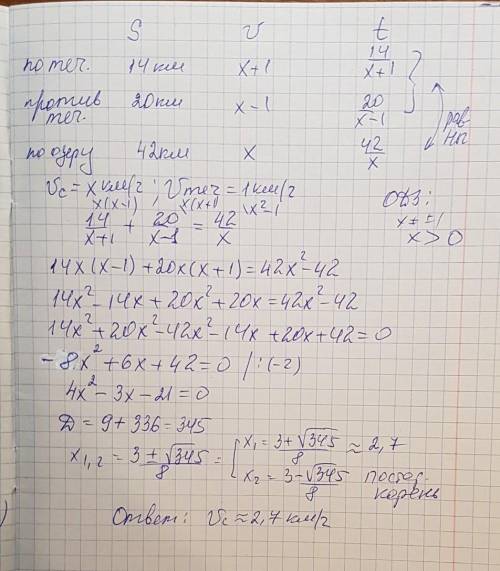 S v t
по теч. 14 км x+1 14/(x+1)
против теч. 20км x-1 20/(x-1)
рав-ны
по озеру 42км x 42/x
Vc = x км/г ; Vтеч = 1 км/г
ОДЗ:
x ≠ ±1
x > 0
x(x-1) x(x+1) \x²-1
14/(x+1) + 20/(x-1) = 42/x
14x(x-1)+20x(x+1)=42x²-42
14x²-14x+20x²+20x=42x²-42
14x²+20x²-42x²-14x+20x+42=0
-8x²+6x+42=0 /:(-2)
4x²-3x-21=0
D=9+336=345
x1,2 = (3±√345)/8 = { x1=(3+√345)/8 ≈ 2,7
x2=(3-√345)/8 корень
Ответ: Vc≈2,7 км/г